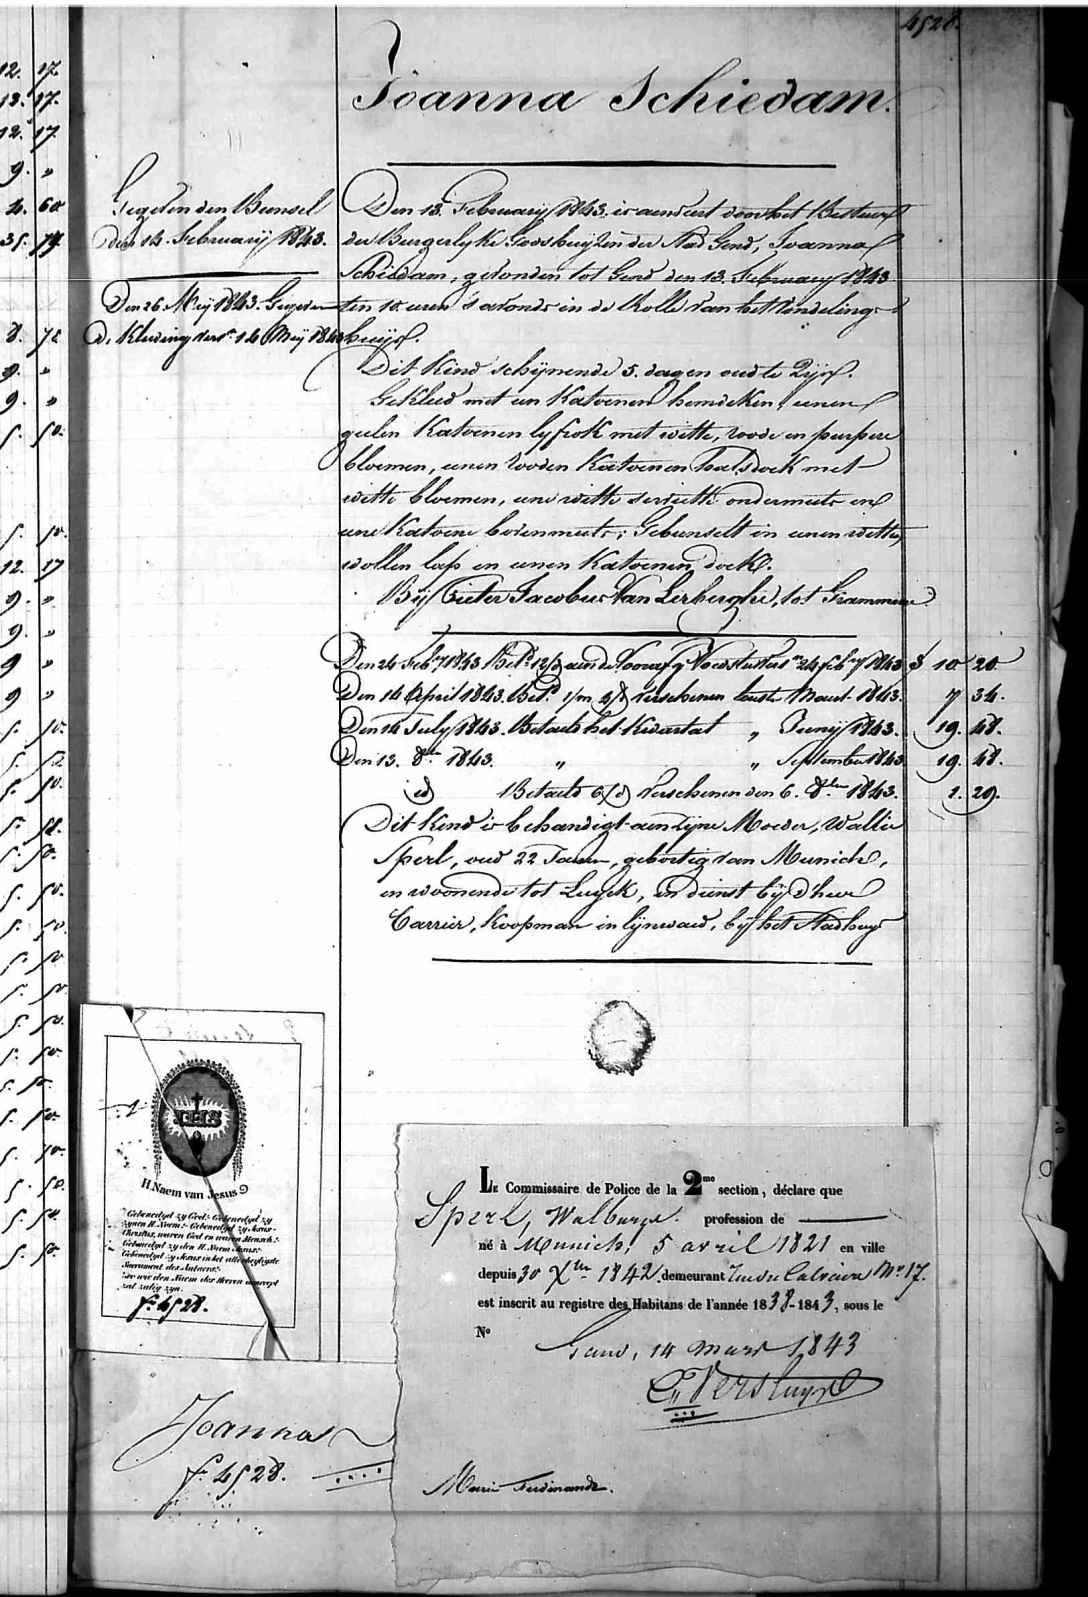 4528.
Joanna Schiedam.
Gegeven den Bunsel
den 14 February 1843.
Den 26 Meij 1843. Gegeven
de Kleeding vers. 14 Meij 1843
Den 13. February 1843. is aenveert door het Bestuer
der Burgerlyke Godshuyzen der Stad Gend, Joanna
Schiedam, gevonden tot Gend den 13. February 1843
ten 10 uren 's avonds in de Rolle van het Vondeling-
huijs.
Dit Kind schijnende 5. dagen oud te Zijn.
Gekleed met een Katoenen hemdeken, eenen
geelen Katoenen lyfrok met witte, roode en purpere
bloemen, eenen rooden Katoenen halsdoek met
witte bloemen, eene witte serviette ondermuts en
eene Katoene bovenmuts; Gebunselt in eenen witten
wollen lap en eenen Katoenen doek.
Bij Pieter Jacobus Van Lerberghe, tot Grammene
Den 24 Feb.ry 1843 Bet.d 12/d aen de 24 feb.ry 1843 f 10 20
Den 14 April 1843. Bet.d 1/m 4/d verschenen Maert 1843. 7 34.
Den 14 July 1843. Betaeld het Kwartael „ Junij 1843. 19. 48.
Den 13. 8.ber 1843. „ „ September 1843 19. 48.
id Betaeld 6/d verschenen den 6. 8.ber 1843. 1. 29.
Dit Kind is behandigt aen zyne Moeder, Wallie
Sperl, oud 22 Jaeren, geboortig van Munich,
en woonende tot Luyck, in dienst bij d'heer
Carrier, Koopman in lijnwaed, bij het Stadhuys
IHS
H. Naem van Jesus
Gebenedyd zy God. Gebenedyd zy
zynen H. Naem. Gebenedyd zy Jesus-
Christus, waren God en waren Mensch.
Gebenedyd zy den H. Naem Jesus.
Gebenedyd zy Jesus in het alderheyligste
Sacrament des Autaers.
Zoo wie den Naem des Heeren aenroept
zal zalig zyn.
f.º 4528.
Joanna
f.º 4528.
Le Commissaire de Police de la 2me section, déclare que
Sperl, Walburge. profession de
né à Munich, 5 avril 1821 en ville
depuis 30 Xbre 1842 demeurant rue du Calvaire Nº 17.
est inscrit au registre des Habitans de l'année 1838-1843, sous le
Nº
Gand, 14 Mars 1843
Marie Ferdinande.